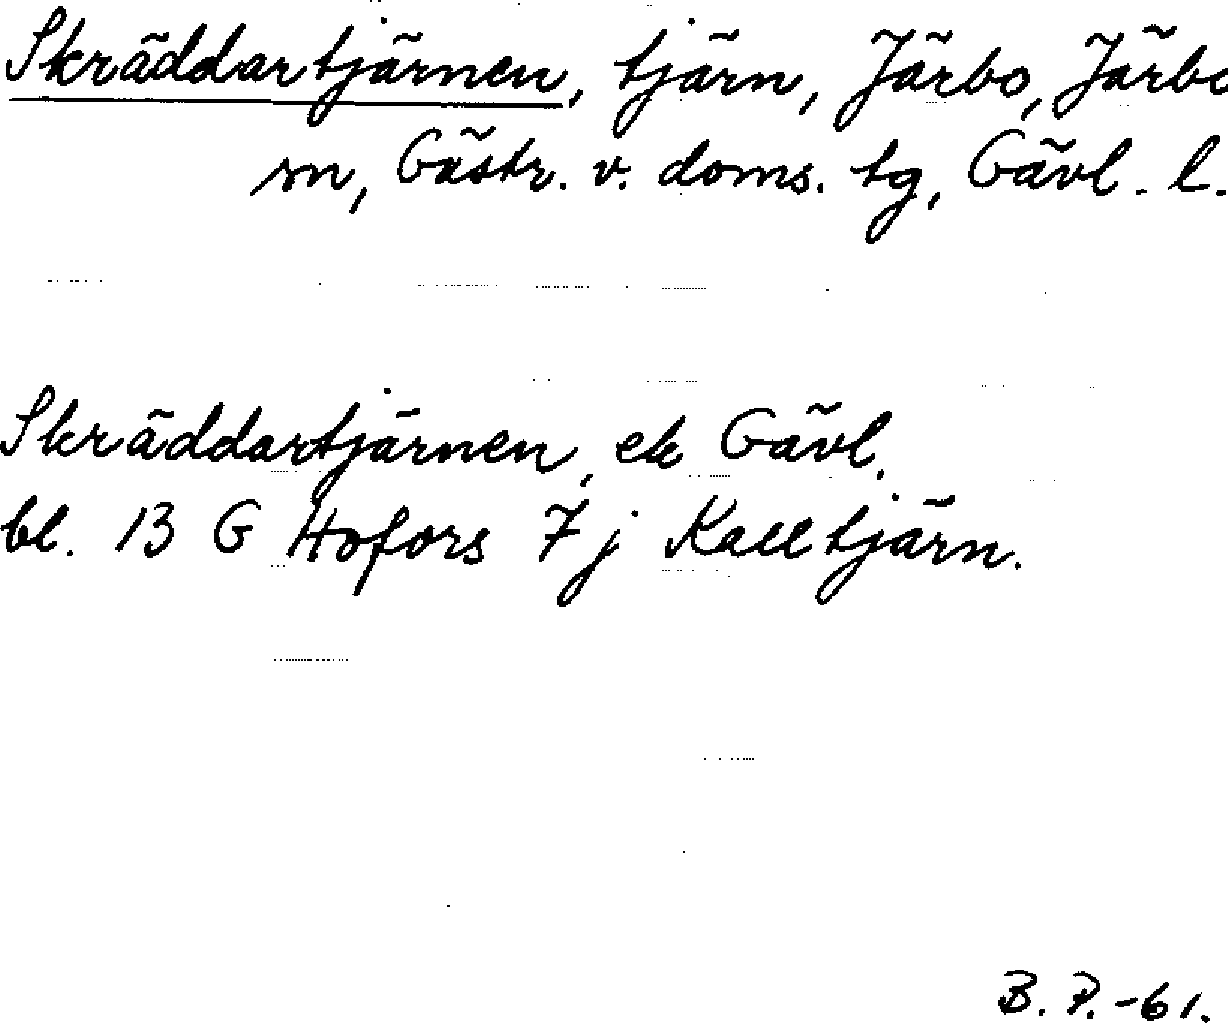 Skräddartjärnen, tjärn, Järbo, Järbo
sn, Gästr. v. doms. tg, Gävl. l.
Skräddartjärnen, ek Gävl.
bl. 13 G Hofors 7 j Kalltjärn.
B. P. -61.